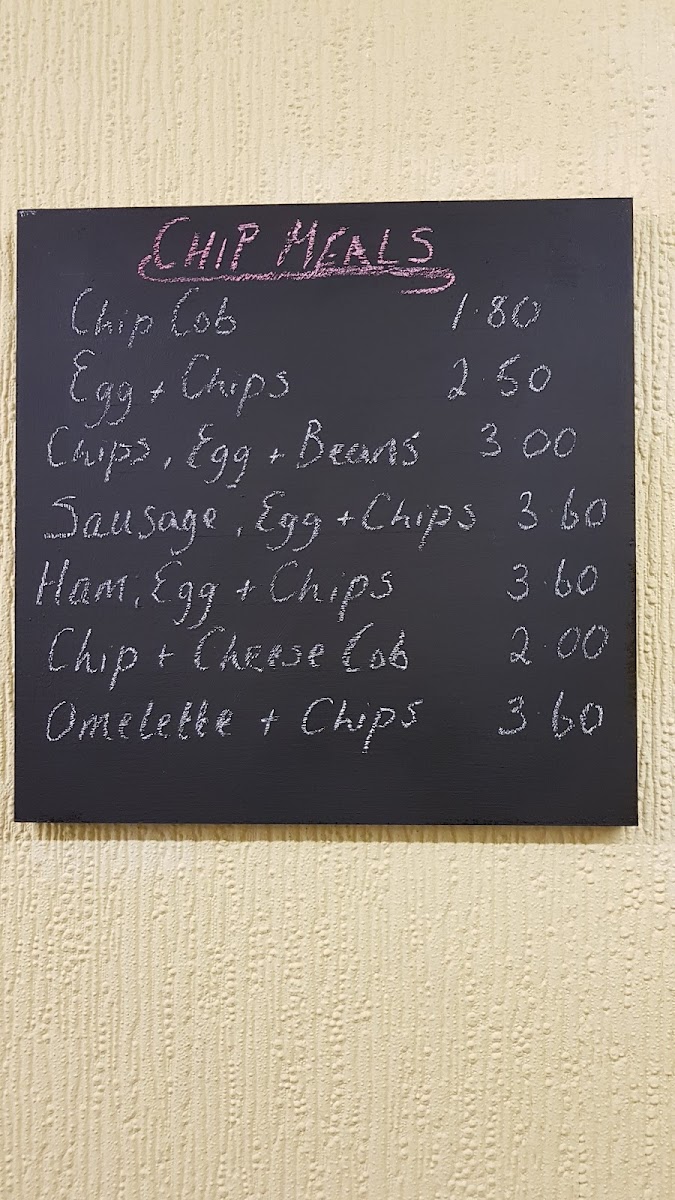 CHIP MEALS
Chip Cob 1.80
Egg + Chips 2.50
Chips, Egg + Beans 3.00
Sausage, Egg + Chips 3.60
Ham, Egg + Chips 3.60
Chip + Cheese Cob 2.00
Omelette + Chips 3.60